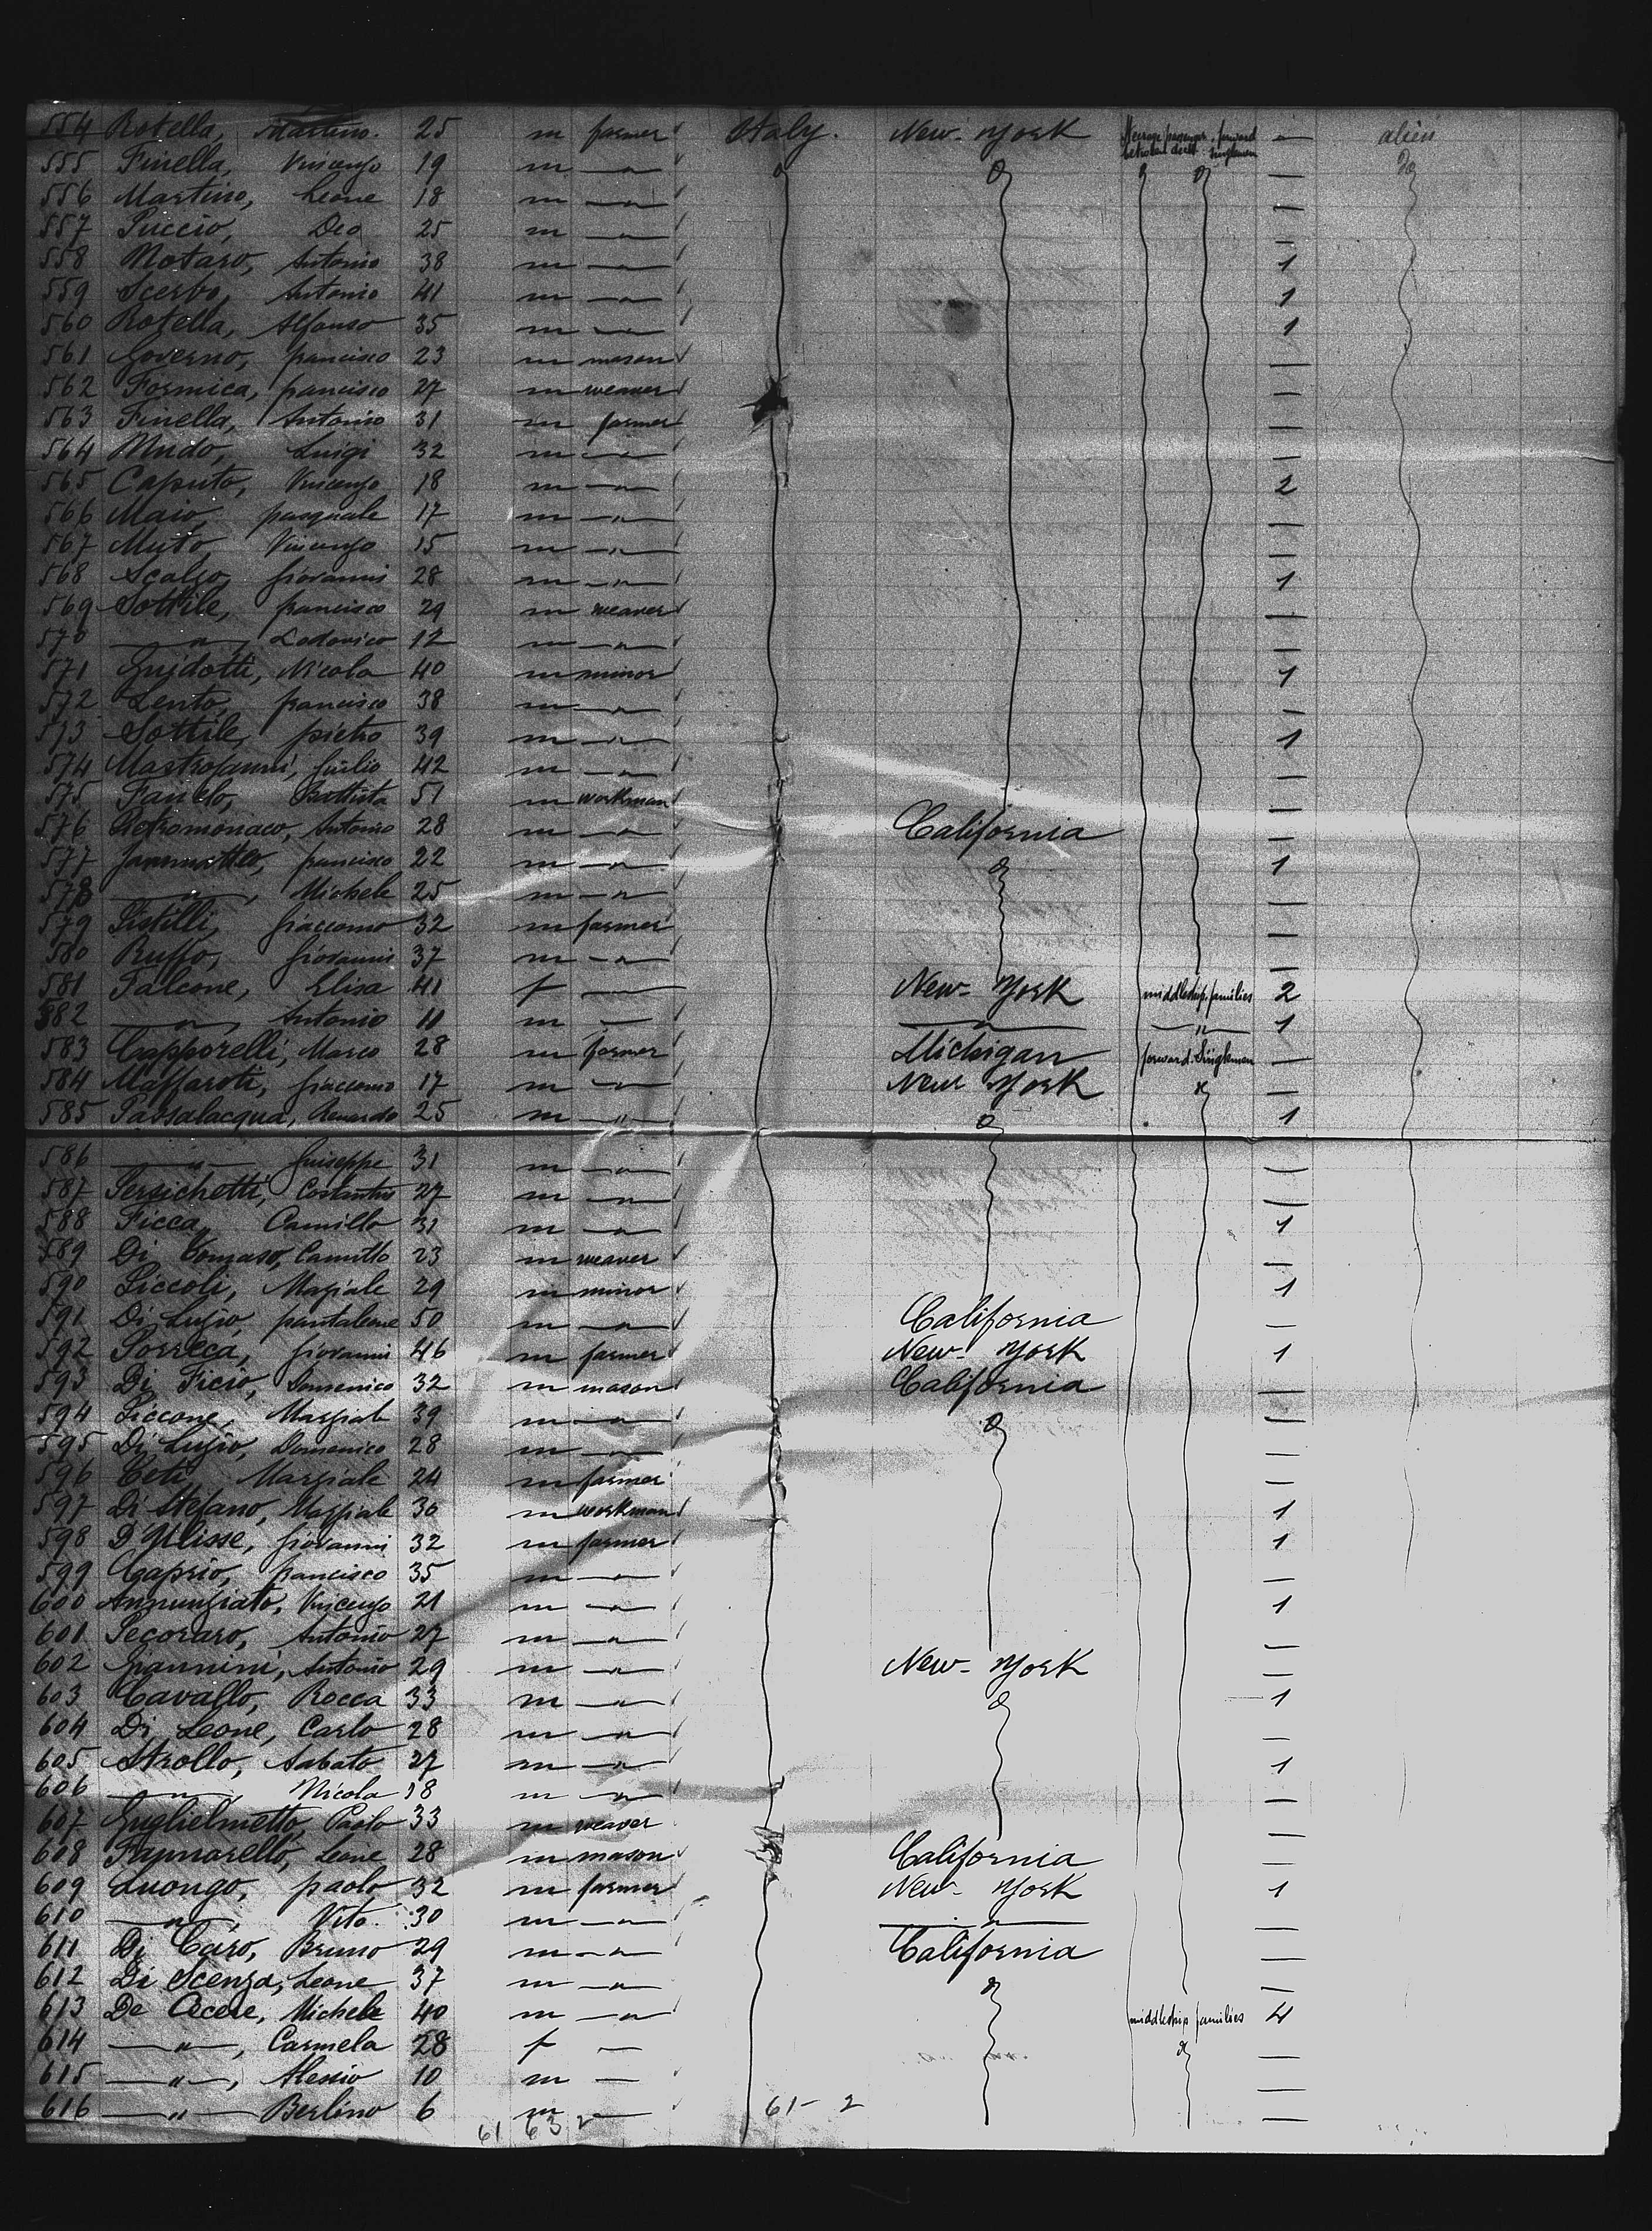 554 Rotella, Martino. 25 m farmer Italy. New-York Steerage passenger forward between decks singlemen — alien
555 Finella, Vincenzo 19 m —"— do do do do — do
556 Martino, Leone 18 m —"— —
557 Puccio, Deo 25 m —"— —
558 Notaro, Antonio 38 m —"— 1
559 Scerbo, Antonio 41 m —"— 1
560 Rotella, Alfonso 35 m —"— 1
561 Governo, francisco 23 m mason —
562 Formica, francisco 27 m weaver —
563 Finella, Antonio 31 m farmer —
564 Mudo, Luigi 32 m —"— —
565 Caputo, Vincenzo 18 m —"— 2
566 Maio, pasquale 17 m —"— —
567 Muto, Vincenzo 15 m —"— —
568 Scalzo, giovanni 28 m —"— 1
569 Sottile, francisco 29 m weaver —
570 —"—, Lodovico 12 m —"— —
571 Guidotti, Nicola 40 m minor 1
572 Lento, francisco 38 m —"— —
573 Sottile, pietro 39 m —"— 1
574 Mastrojanni, Giulio 42 m —"— —
575 Battista 51 m workman —
576 Pietromonaco, Antonio 28 m —"— California —
577 Jannmatteo, francisco 22 m —"— do 1
578 —"—, Michele 25 m —"— —
579 Pistilli, giaccomo 32 m farmer —
580 Ruffo, giovanni 37 m —"— —
581 Falcone, Elisa 41 f — New-York middleship families 2
582 —"—, Antonio 11 m — —"— —"— 1
583 Capporelli, Marco 28 m farmer Michigan forward. Singlemen —
584 Massaroti, giaccomo 17 m —"— New York do —
585 Passalacqua, 25 m —"— do 1
586 —"— Guiseppe 31 m —"— —
587 Persichetti, Costantino 27 m —"— —
588 Ficca, Camillo 31 m —"— 1
589 Di Tomaso, Camillo 23 m weaver —
590 Piccoli, Marziale 29 m minor 1
591 Di Luzio, pantaleone 50 m —"— California —
592 Porreca, giovanni 46 m farmer New-York 1
593 Di Ficio, Domenico 32 m mason California —
594 Piccone, Marziale 39 m —"— do —
595 Di Luzio, Domenico 28 m —"— —
596 Ceti Marziale 24 m farmer —
597 Di Stefano, Marziale 30 m workman 1
598 D'Ulisse, giovanni 32 m farmer 1
599 Caprio, francisco 35 m —"— —
600 Annunziato, Vincenzo 21 m —"— 1
601 Pecoraro, Antonio 27 m —"— —
602 Giannini, Antonio 29 m —"— New-York —
603 Cavallo, Rocca 33 m —"— do 1
604 Di Leone, Carlo 28 m —"— —
605 Strollo, Sabato 27 m —"— 1
606 —"— Nicola 18 m —"— —
607 Guglielmetto, Paolo 33 m weaver —
608 Leone 28 m mason California —
609 Luongo, paolo 32 m farmer New-York 1
610 —"—, Vito. 30 m —"— —"— —
611 Di Caro, Bruno 29 m —"— California —
612 Di Scenza, Leone 37 m —"— do —
613 De Cicere, Michele 40 m —"— middleship families 4
614 —"—, Carmela 28 f — do —
615 —"—, Alessio 10 m — —
616 —"— Berlino 6 m — —
61 63 2 61-2